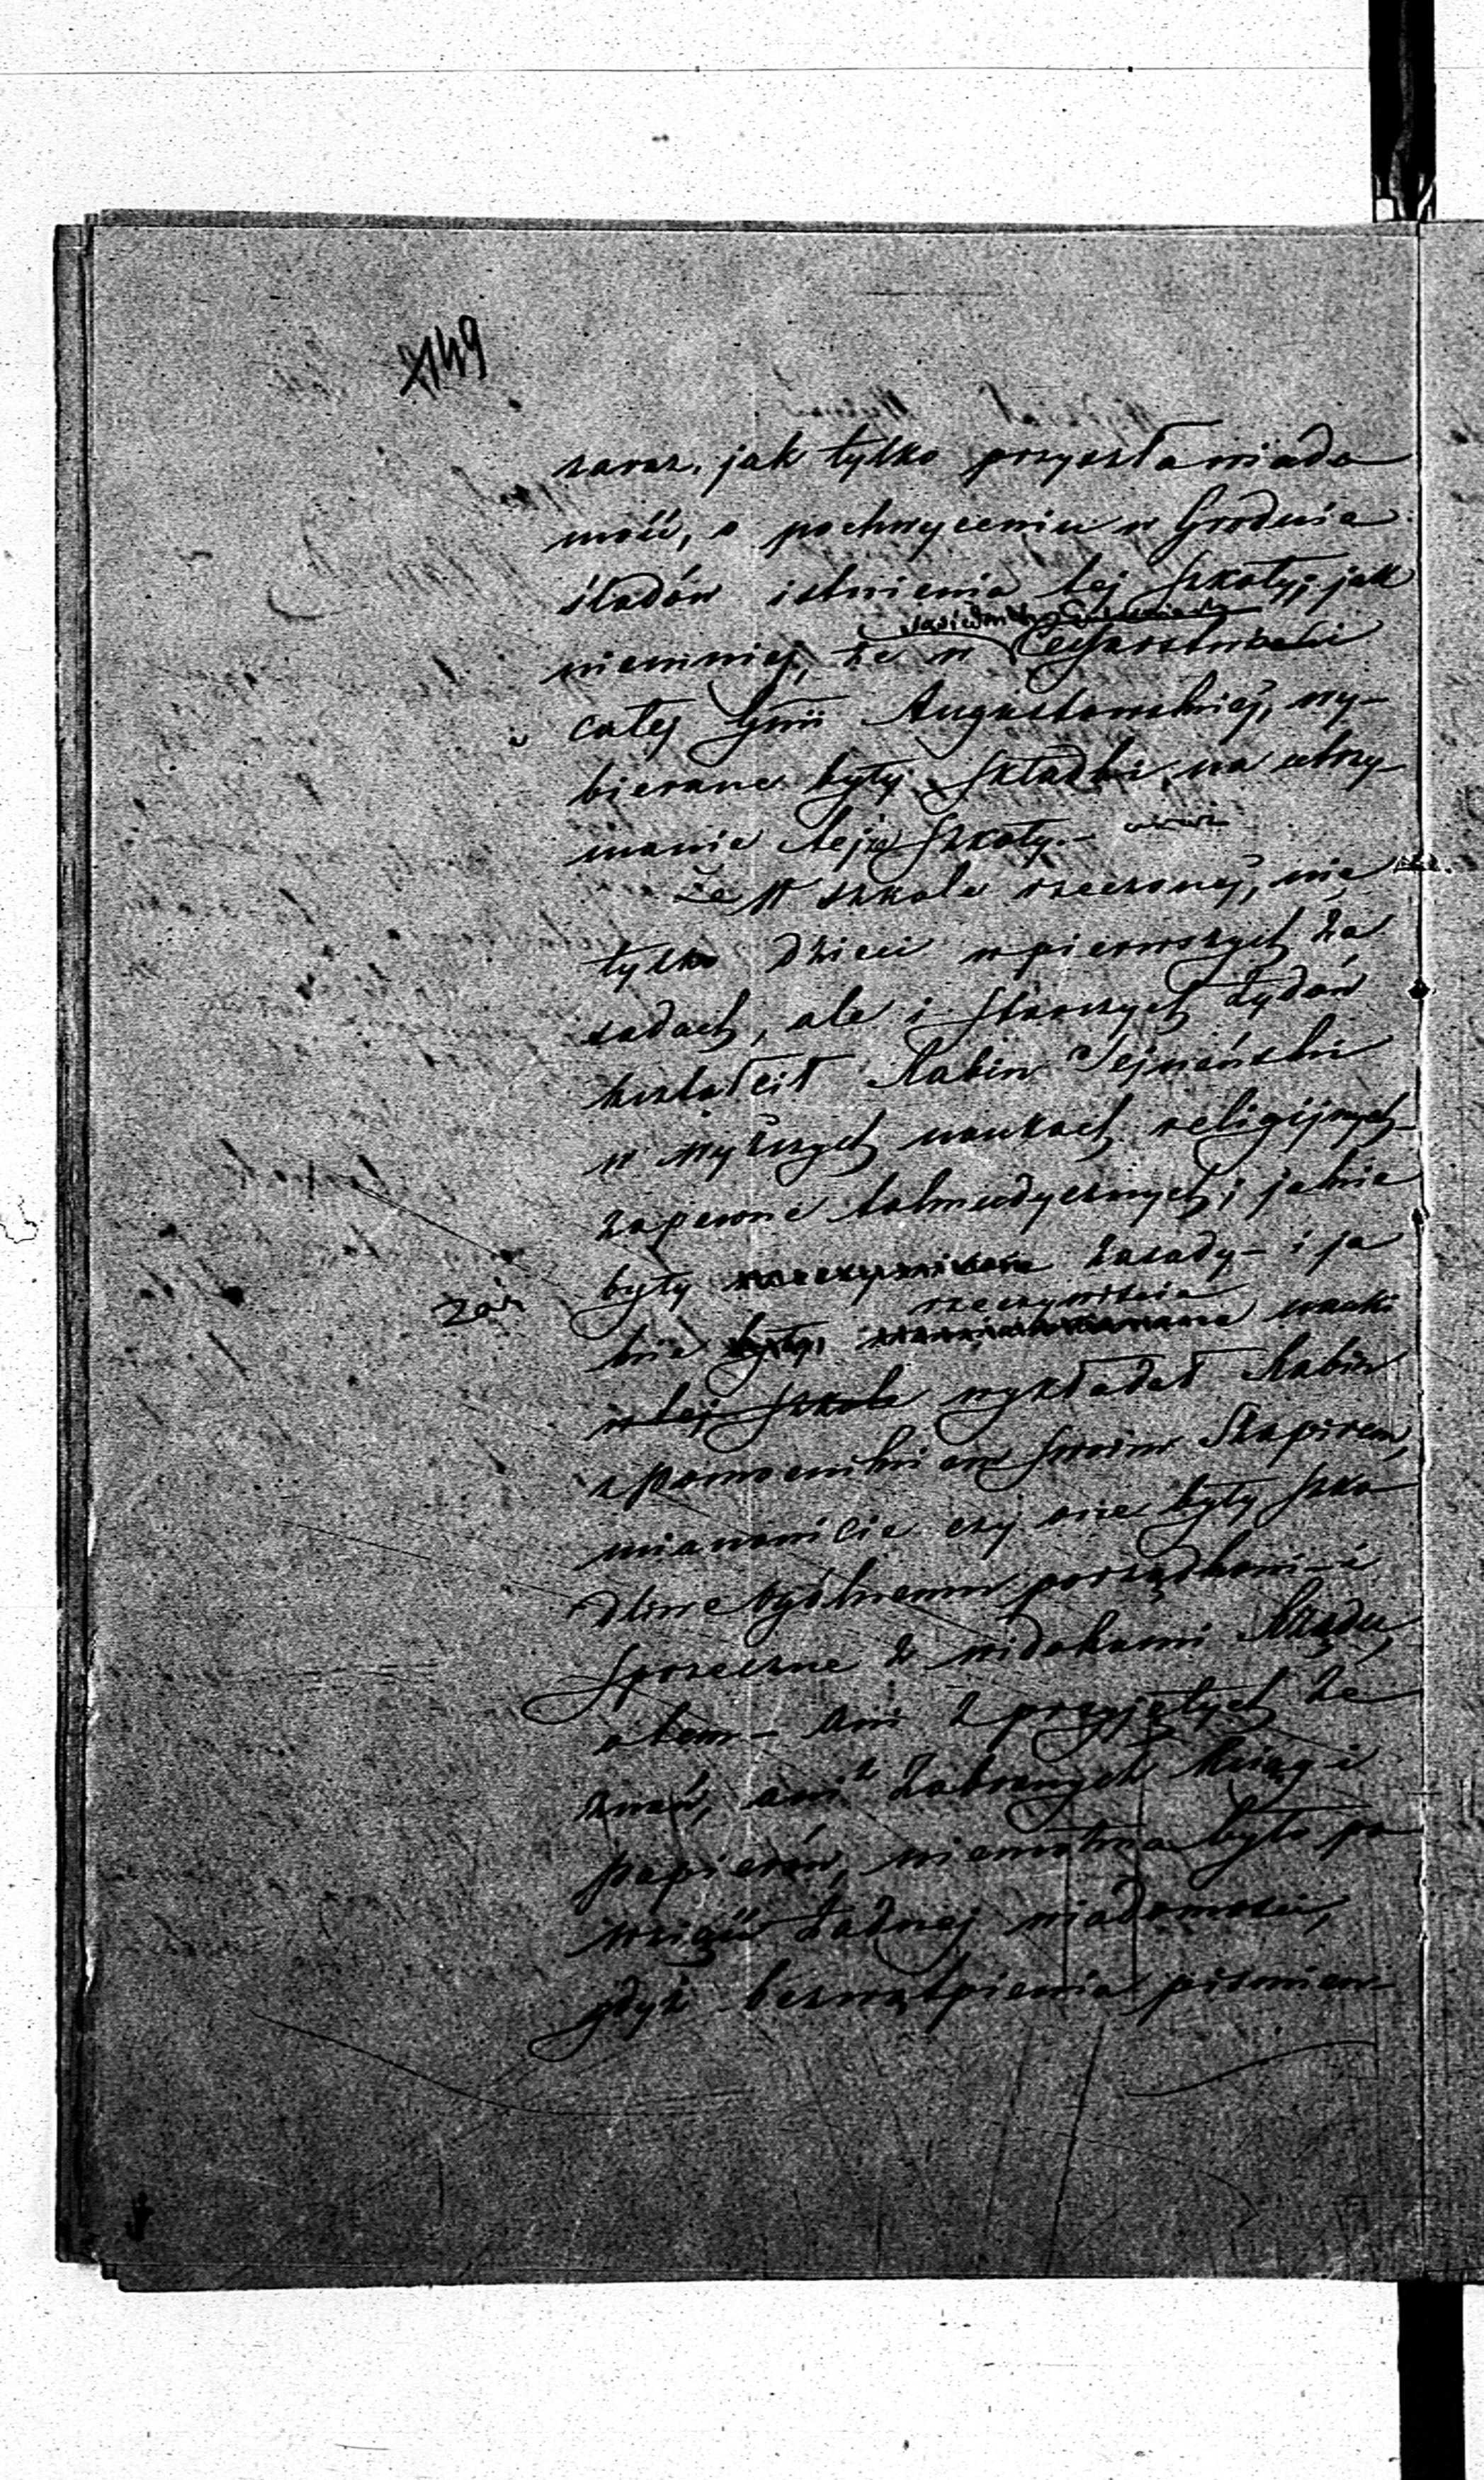 149
zaraz, jak tylko przyszła wiado
mość, o pochwyceniu w Grodnie
śladów istnienia tej szkoły; jak
niemniej, że w Cesarstwie i
całej Gnii Augustowskiej, wy-
bierane były składki, na utrzy-
manie tejże szkoły.-
Że w szkole rzeczonej, nie
tylko dzieci w pierwszych za
sadach, ale i starszych żydów
kształcił Rabin Sejneński
w wyższych naukach religijnych
zapewne talmudycznych; jakie
były zasady - i ja
zaś
rzeczywiście
kie były, nauki
w tej szkole wykładał Rabin
z pomocnikiem swoim Szapirem,
mianowicie czy one były szko
dliwe ogólnemu porządkowi - i
sprzeczne z widokami Rządu,
o tem - ani z przyjętych ze
znań, ani z zabranych ksiąg i
papierów, niemożna było po
wziąść żadnej wiadomości,
gdyż bezwątpienia piśmien-